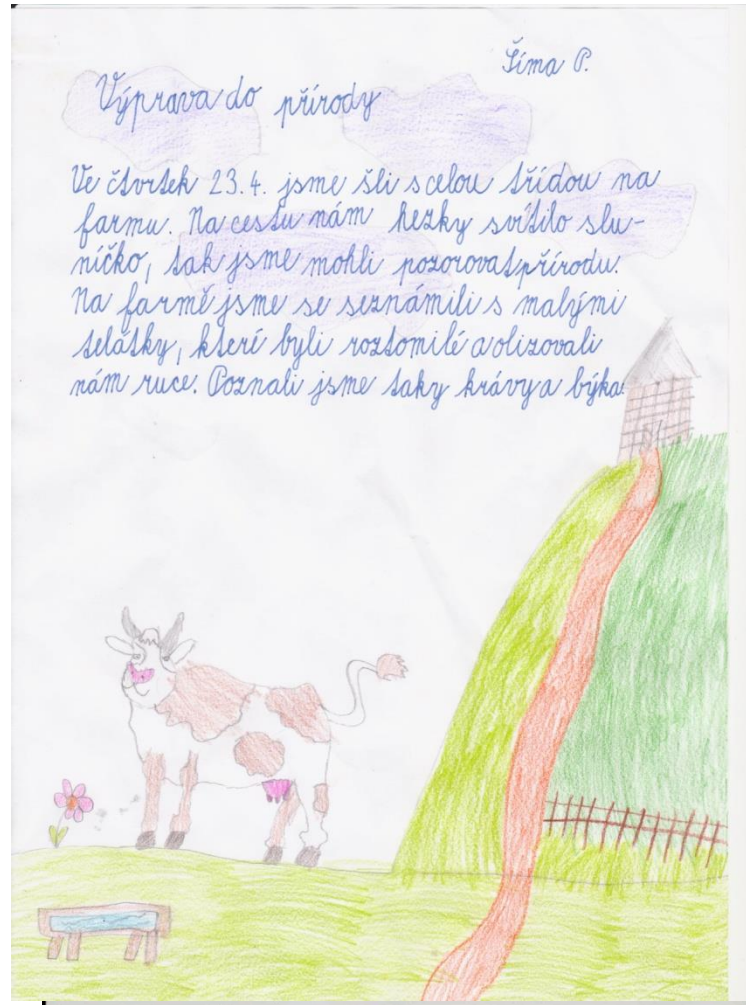 Šíma P.
Výprava do přírody
Ve čtvrtek 23.4. jsme šli s celou třídou na
farmu. Na cestu nám hezky svítilo slu-
níčko, tak jsme mohli pozorovat přírodu.
Na farmě jsme se seznámili s malými
telátky, které byli roztomilé a olizovali
nám ruce. Poznali jsme taky krávy a býka.